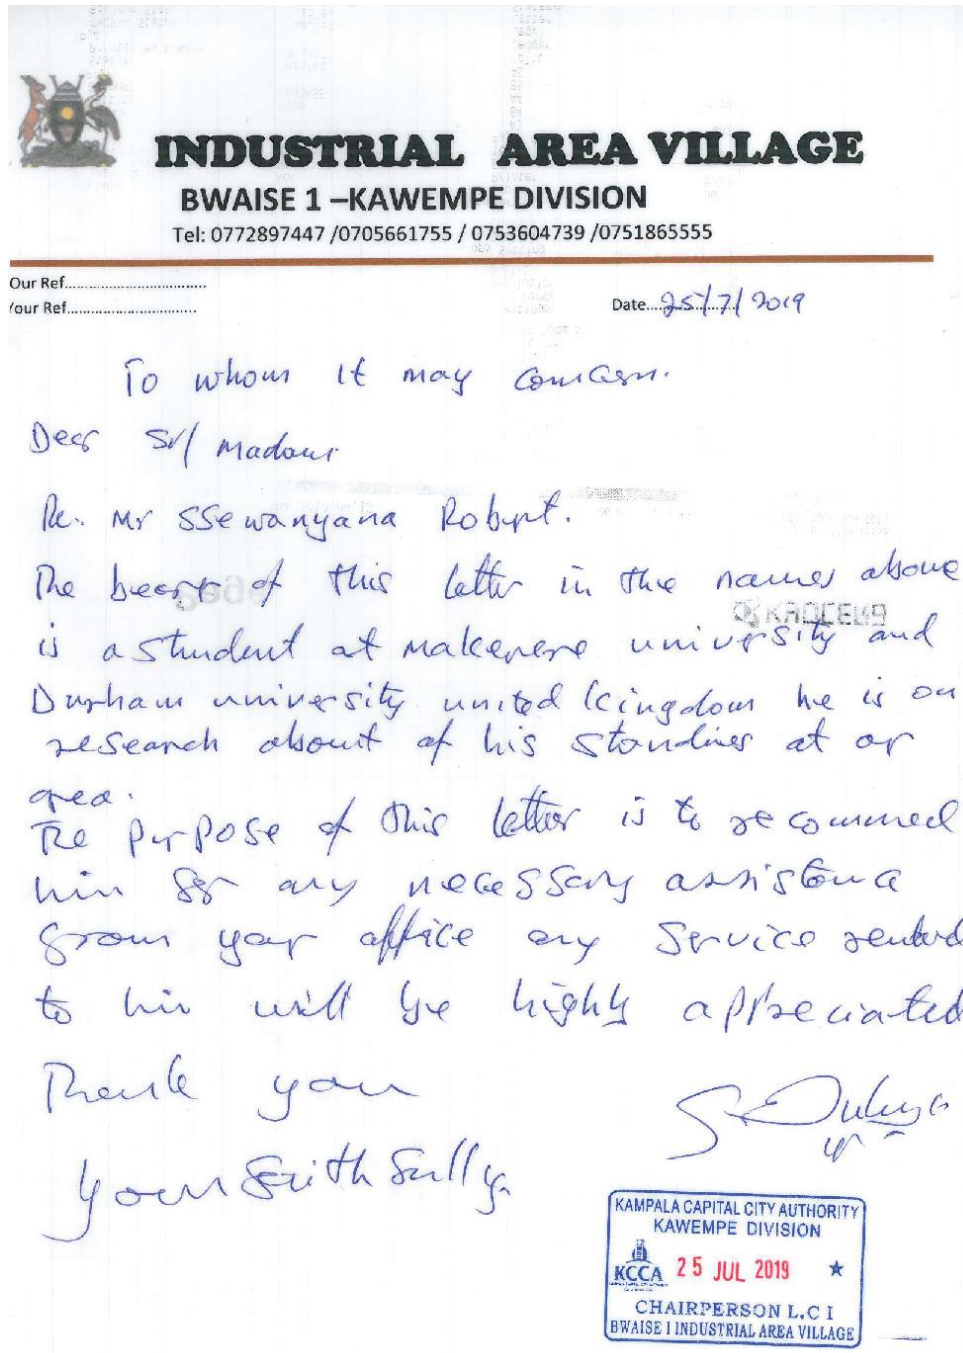 INDUSTRIAL AREA VILLAGE
BWAISE 1 –KAWEMPE DIVISION
Tel: 0772897447 /0705661755 / 0753604739 /0751865555
Our Ref....................................
Your Ref.................................
Date....25/7/2019
To whom it may concern.
Dear Sir/ Madam
Re. Mr SSewanyana Robert.
The bearer of this letter in the names above
is a student at Makerere university and
Durham university united kingdom he is on
research about of his studies at or
area.
The purpose of this letter is to recommed
him for any necessary assistance
from your office any service rended
to him will be highly appreciated
Thank you
Yours faithfully.
KAMPALA CAPITAL CITY AUTHORITY
KAWEMPE DIVISION
KCCA 25 JUL 2019
CHAIRPERSON L.C I
BWAISE I INDUSTRIAL AREA VILLAGE